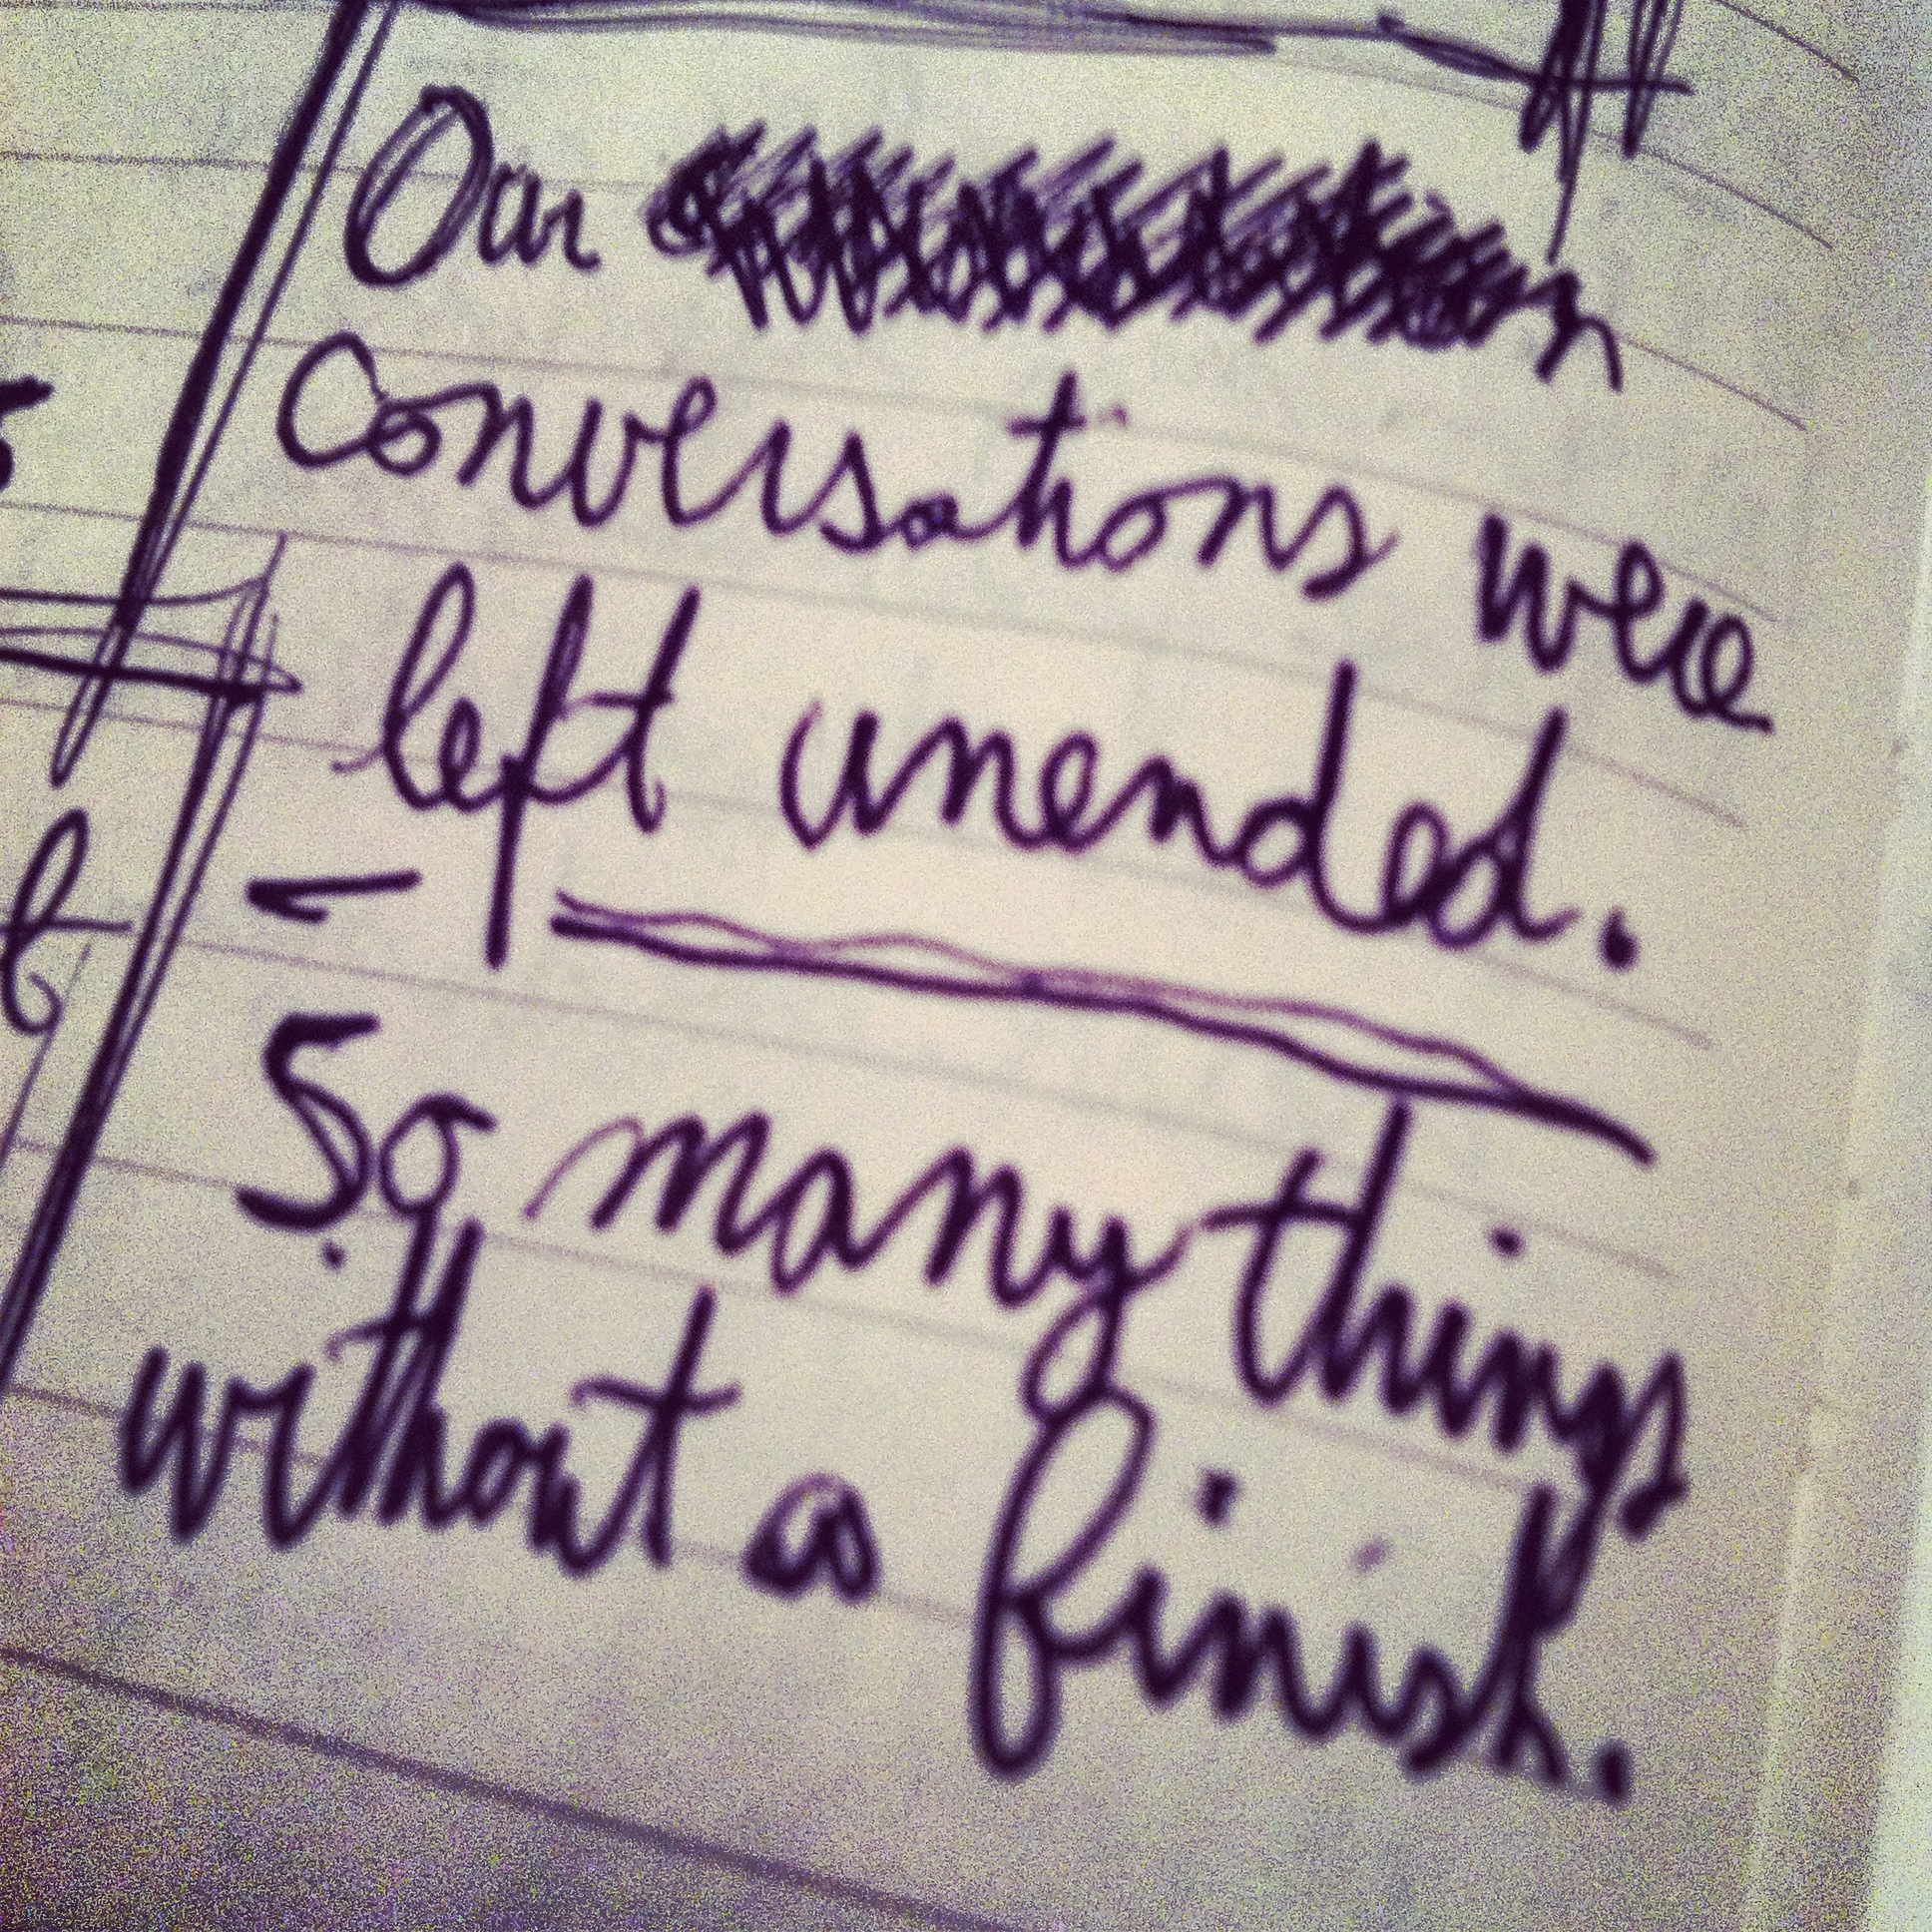 Our
Conversations were
left unended.
So many things
without a finish.